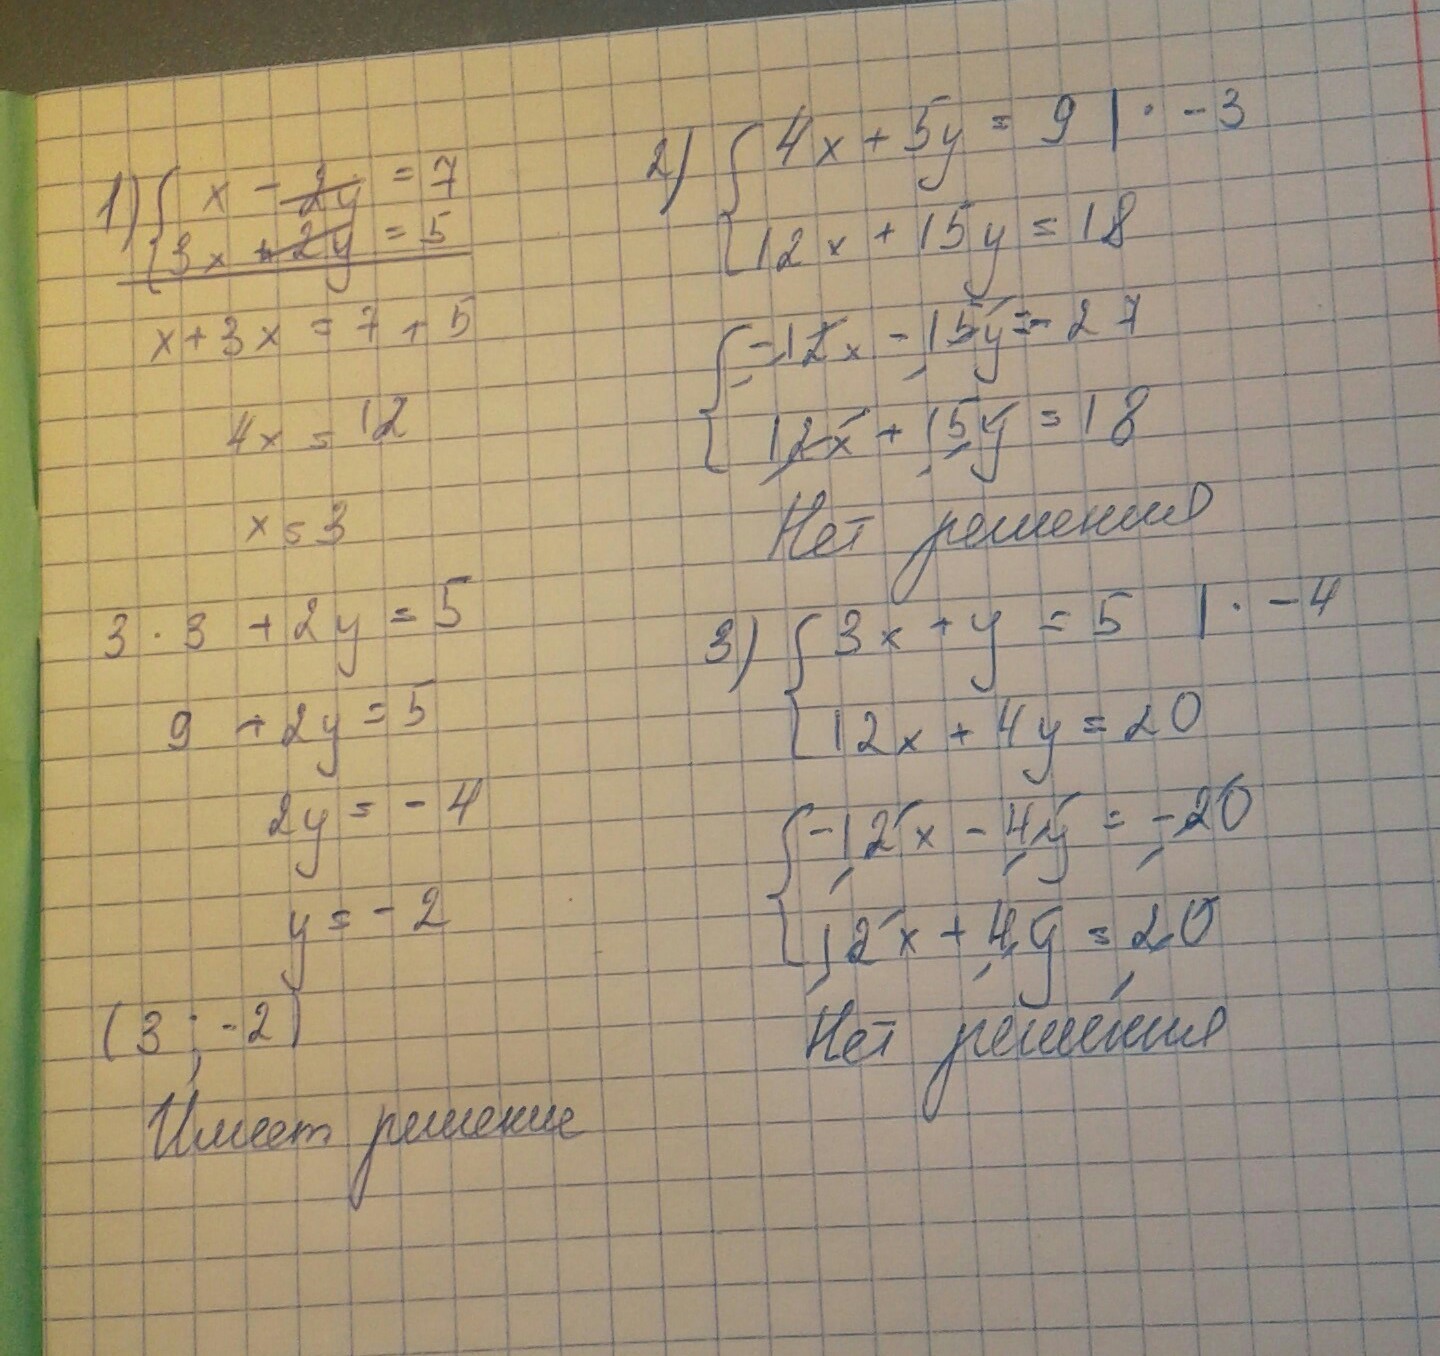 1) { x - 2y = 7
3x + 2y = 5
x + 3x = 7 + 5
4x = 12
x = 3
3 · 3 + 2y = 5
9 + 2y = 5
2y = - 4
y = - 2
( 3 ; -2 )
Имеет решение
2) { 4x + 5y = 9 | · -3
12x + 15y = 18
{ -12x - 15y = - 27
12x + 15y = 18
Нет решения
3) { 3x + y = 5 | · -4
12x + 4y = 20
{ -12x - 4y = -20
12x + 4y = 20
Нет решения